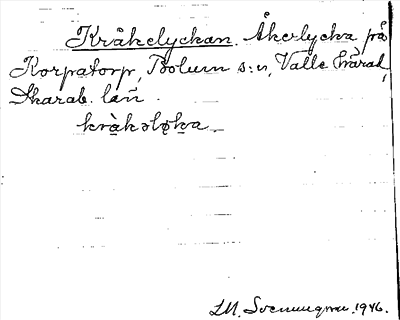 Kråkelyckan. Åkerlycka på
Korpatorp, Bolum s:n, Valle härad,
Skarab. län.
kråkəløka
LM. Svenungsson. 1946.